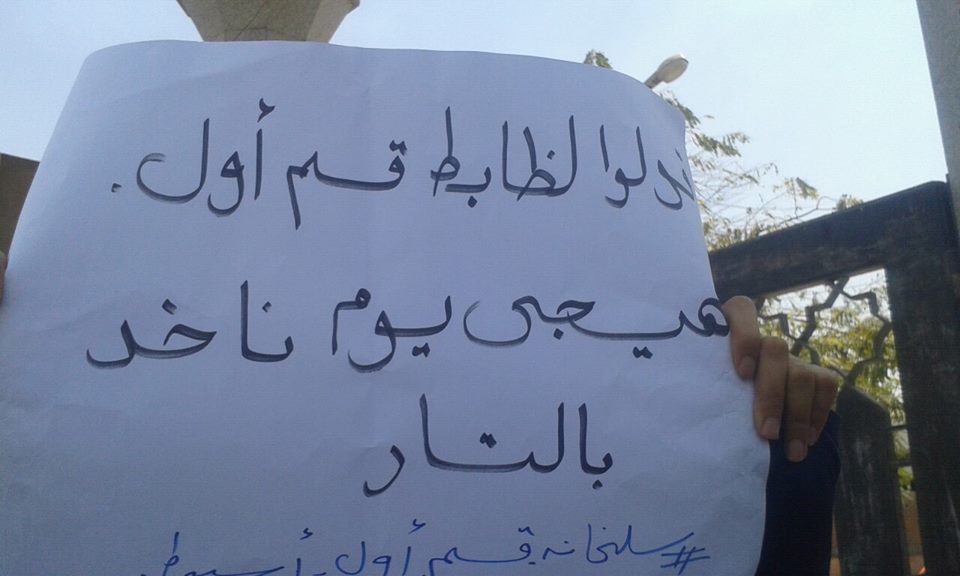 لظابط قسم أول.
هيجى يوم ناخد
بالتار
#سلخانه_قسم_أول_أسيوط